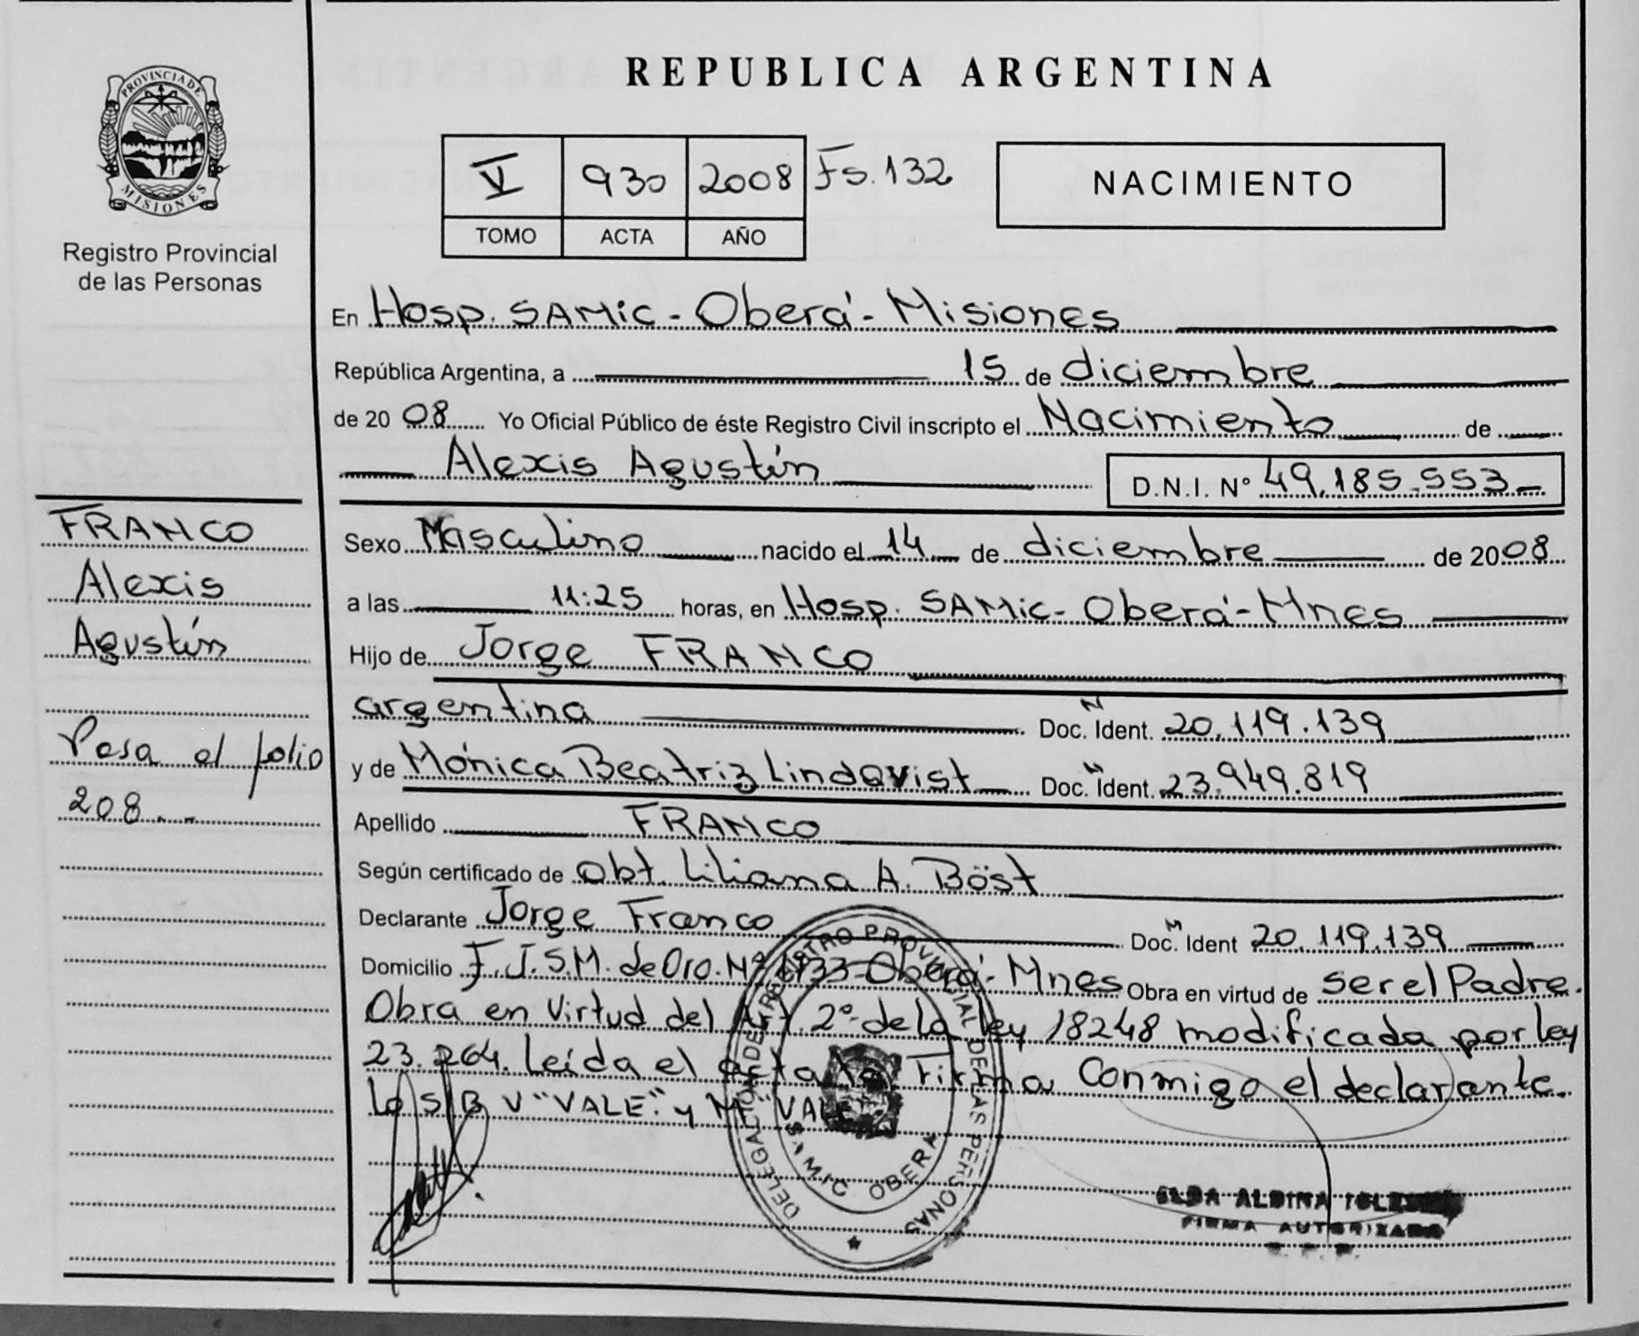 PROVINCIA DE
MISIONES
Registro Provincial
de las Personas
REPUBLICA ARGENTINA
V 930 2008 Fs. 132
TOMO ACTA AÑO
NACIMIENTO
En Hosp. SAMic - Oberá - Misiones
República Argentina, a 15 de diciembre
de 2008 Yo Oficial Público de éste Registro Civil inscripto el Nacimiento de
Alexis Agustín D.N.I. Nº 49.185.553
FRANCO
Alexis
Agustín
Pasa al folio
208
Sexo Masculino nacido el 14 de diciembre de 2008
a las 11:25 horas, en Hosp. SAMic - Oberá - Mnes
Hijo de Jorge FRANCO
argentina Doc. N Ident. 20.119.139
y de Mónica Beatriz Lindqvist Doc. N Ident. 23.949.819
Apellido FRANCO
Según certificado de Obt. Liliana A. Böst
Declarante Jorge Franco Doc. N Ident 20.119.139
Domicilio F.J.S.M. de Oro. Nº Oberá - Mnes Obra en virtud de ser el Padre.
Obra en Virtud del Art 2º de la ley 18248 modificada por ley
23.264. Leída el acta la Firma Conmigo el declarante.
"VALE" y "VALE"
DELEGACION DE REGISTRO PROVINCIAL DE LAS PERSONAS
SAMIC OBERA
ELBA ALBINA
FIRMA AUTORIZADA